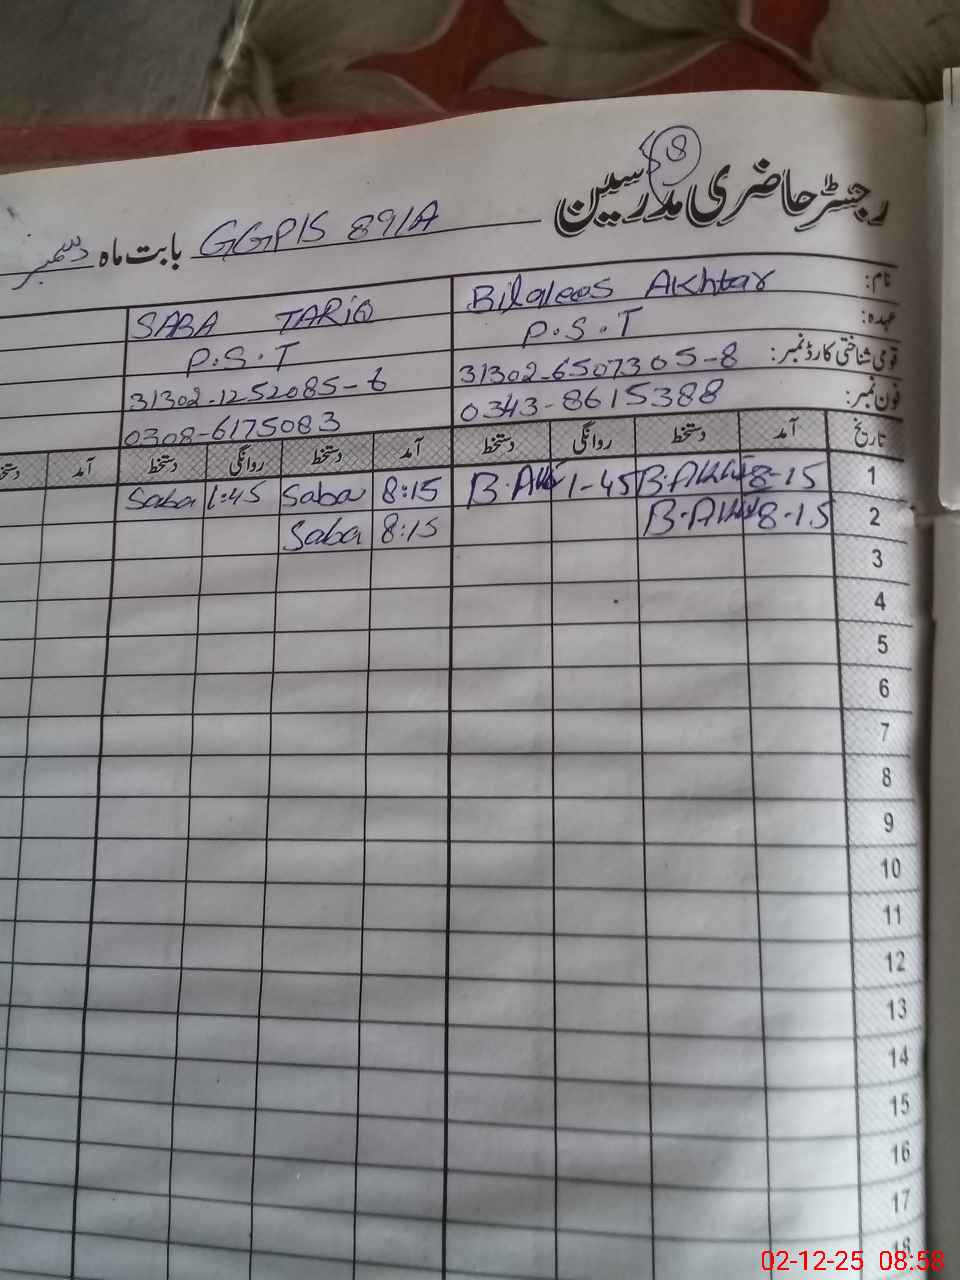 8
رجسٹر حاضری مدرسین GGPIS 89/A بابت ماہ دسمبر
نام: Bilqees Akhtar SABA TARIQ
عہدہ: P.S.T P.S.T
قومی شناختی کارڈ نمبر: 31302-6507305-8 31302-1252085-6
فون نمبر: 0343-8615388 0308-6175083
تاریخ آمد دستخط روانگی دستخط آمد دستخط روانگی دستخط آمد دستخط
1 8-15 B.Akh 1-45 B.Akh 8:15 Saba 1:45 Saba
2 8-15 B.Akh 8:15 Saba
3
4
5
6
7
8
9
10
11
12
13
14
15
16
17
18
02-12-25 08:58